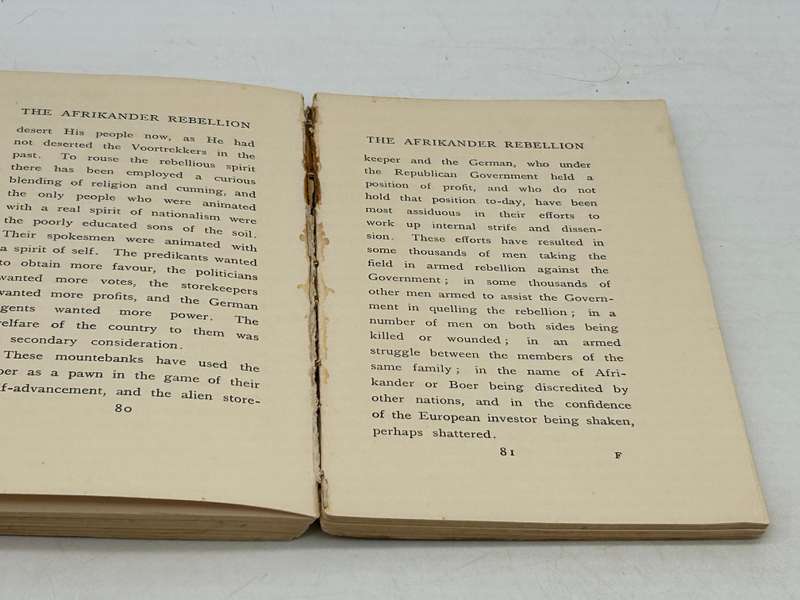 THE AFRIKANDER REBELLION
desert His people now, as He had
not deserted the Voortrekkers in the
past. To rouse the rebellious spirit
there has been employed a curious
blending of religion and cunning, and
the only people who were animated
with a real spirit of nationalism were
the poorly educated sons of the soil.
Their spokesmen were animated with
a spirit of self. The predikants wanted
to obtain more favour, the politicians
wanted more votes, the storekeepers
wanted more profits, and the German
agents wanted more power. The
welfare of the country to them was
secondary consideration.
These mountebanks have used the
as a pawn in the game of their
and the alien store-
80
THE AFRIKANDER REBELLION
keeper and the German, who under
the Republican Government held a
position of profit, and who do not
hold that position to-day, have been
most assiduous in their efforts to
work up internal strife and dissen-
sion. These efforts have resulted in
some thousands of men taking the
field in armed rebellion against the
Government; in some thousands of
other men armed to assist the Govern-
ment in quelling the rebellion; in a
number of men on both sides being
killed or wounded; in an armed
struggle between the members of the
same family; in the name of Afri-
kander or Boer being discredited by
other nations, and in the confidence
of the European investor being shaken,
perhaps shattered.
81 F